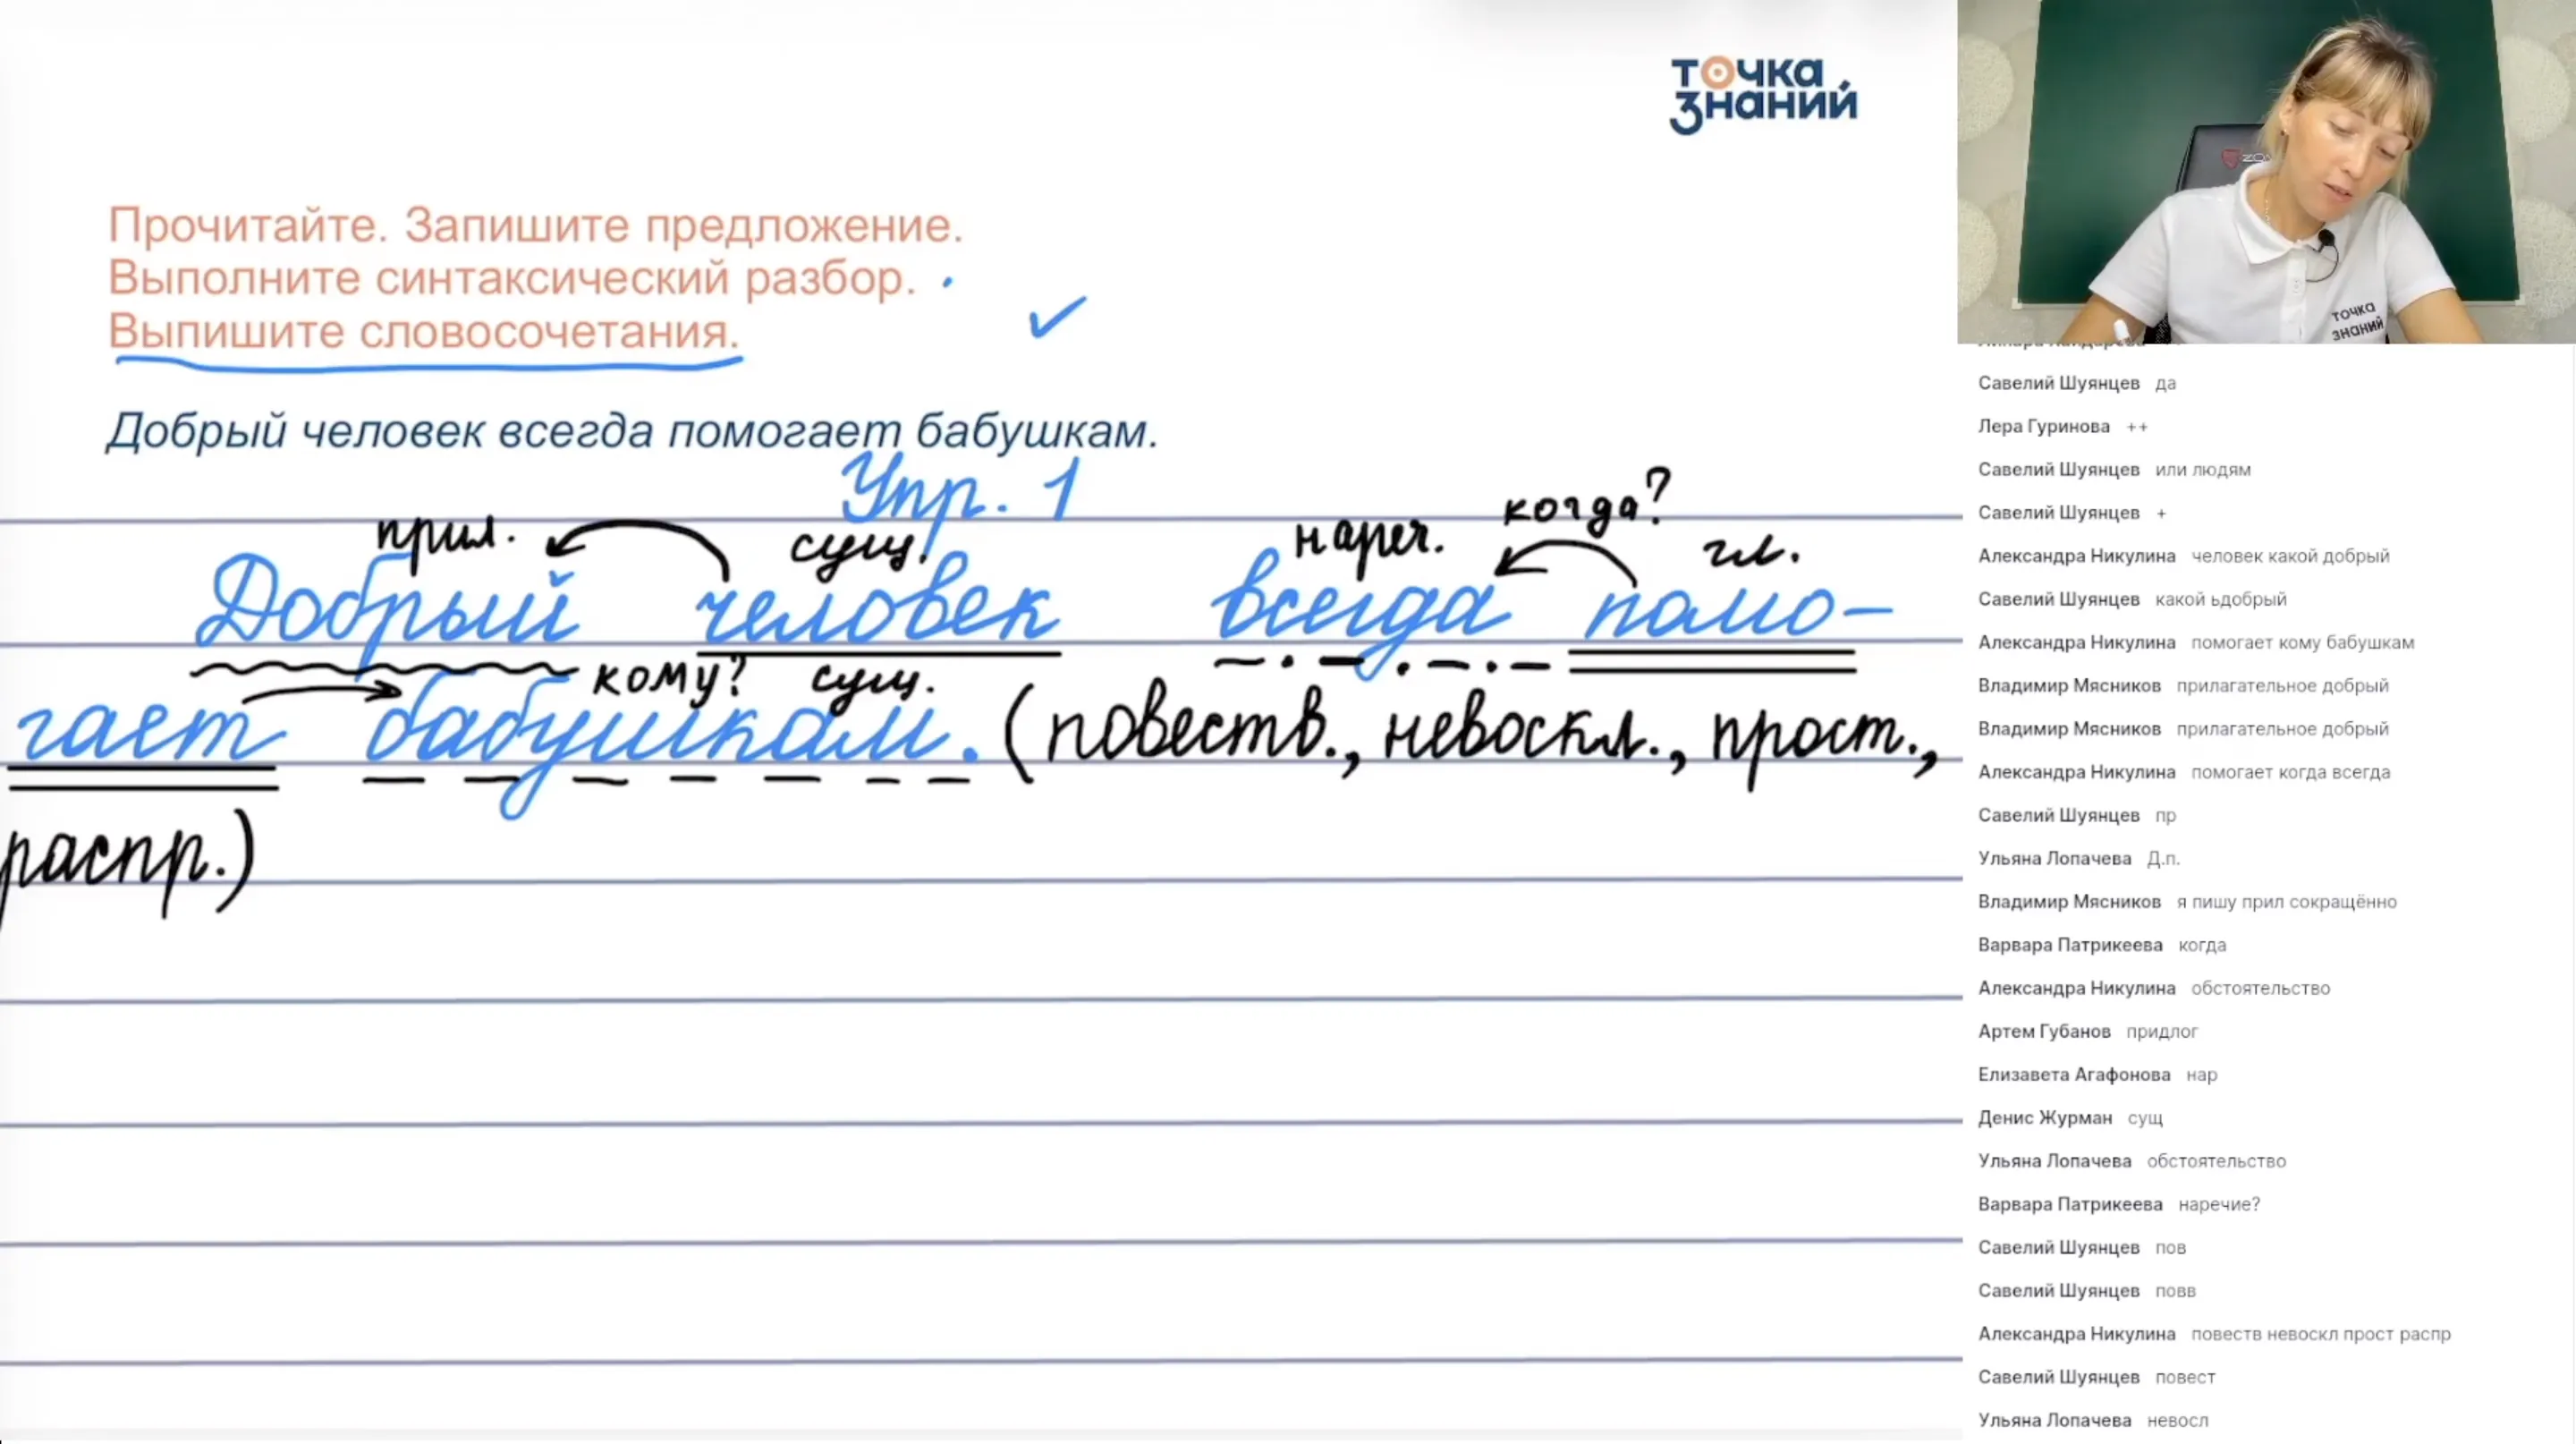 точка
знаний
Прочитайте. Запишите предложение.
Выполните синтаксический разбор.
Выпишите словосочетания.
Добрый человек всегда помогает бабушкам.
Упр. 1
прил. сущ. нареч. когда? гл.
Добрый человек всегда помо-
кому? сущ.
гает бабушкам. (повеств., невоскл., прост.,
распр.)
точка
знаний
Савелий Шуянцев да
Лера Гуринова ++
Савелий Шуянцев или людям
Савелий Шуянцев +
Александра Никулина человек какой добрый
Савелий Шуянцев какой ьдобрый
Александра Никулина помогает кому бабушкам
Владимир Мясников прилагательное добрый
Владимир Мясников прилагательное добрый
Александра Никулина помогает когда всегда
Савелий Шуянцев пр
Ульяна Лопачева Д.п.
Владимир Мясников я пишу прил сокращённо
Варвара Патрикеева когда
Александра Никулина обстоятельство
Артем Губанов придлог
Елизавета Агафонова нар
Денис Журман сущ
Ульяна Лопачева обстоятельство
Варвара Патрикеева наречие?
Савелий Шуянцев пов
Савелий Шуянцев повв
Александра Никулина повеств невоскл прост распр
Савелий Шуянцев повест
Ульяна Лопачева невосл